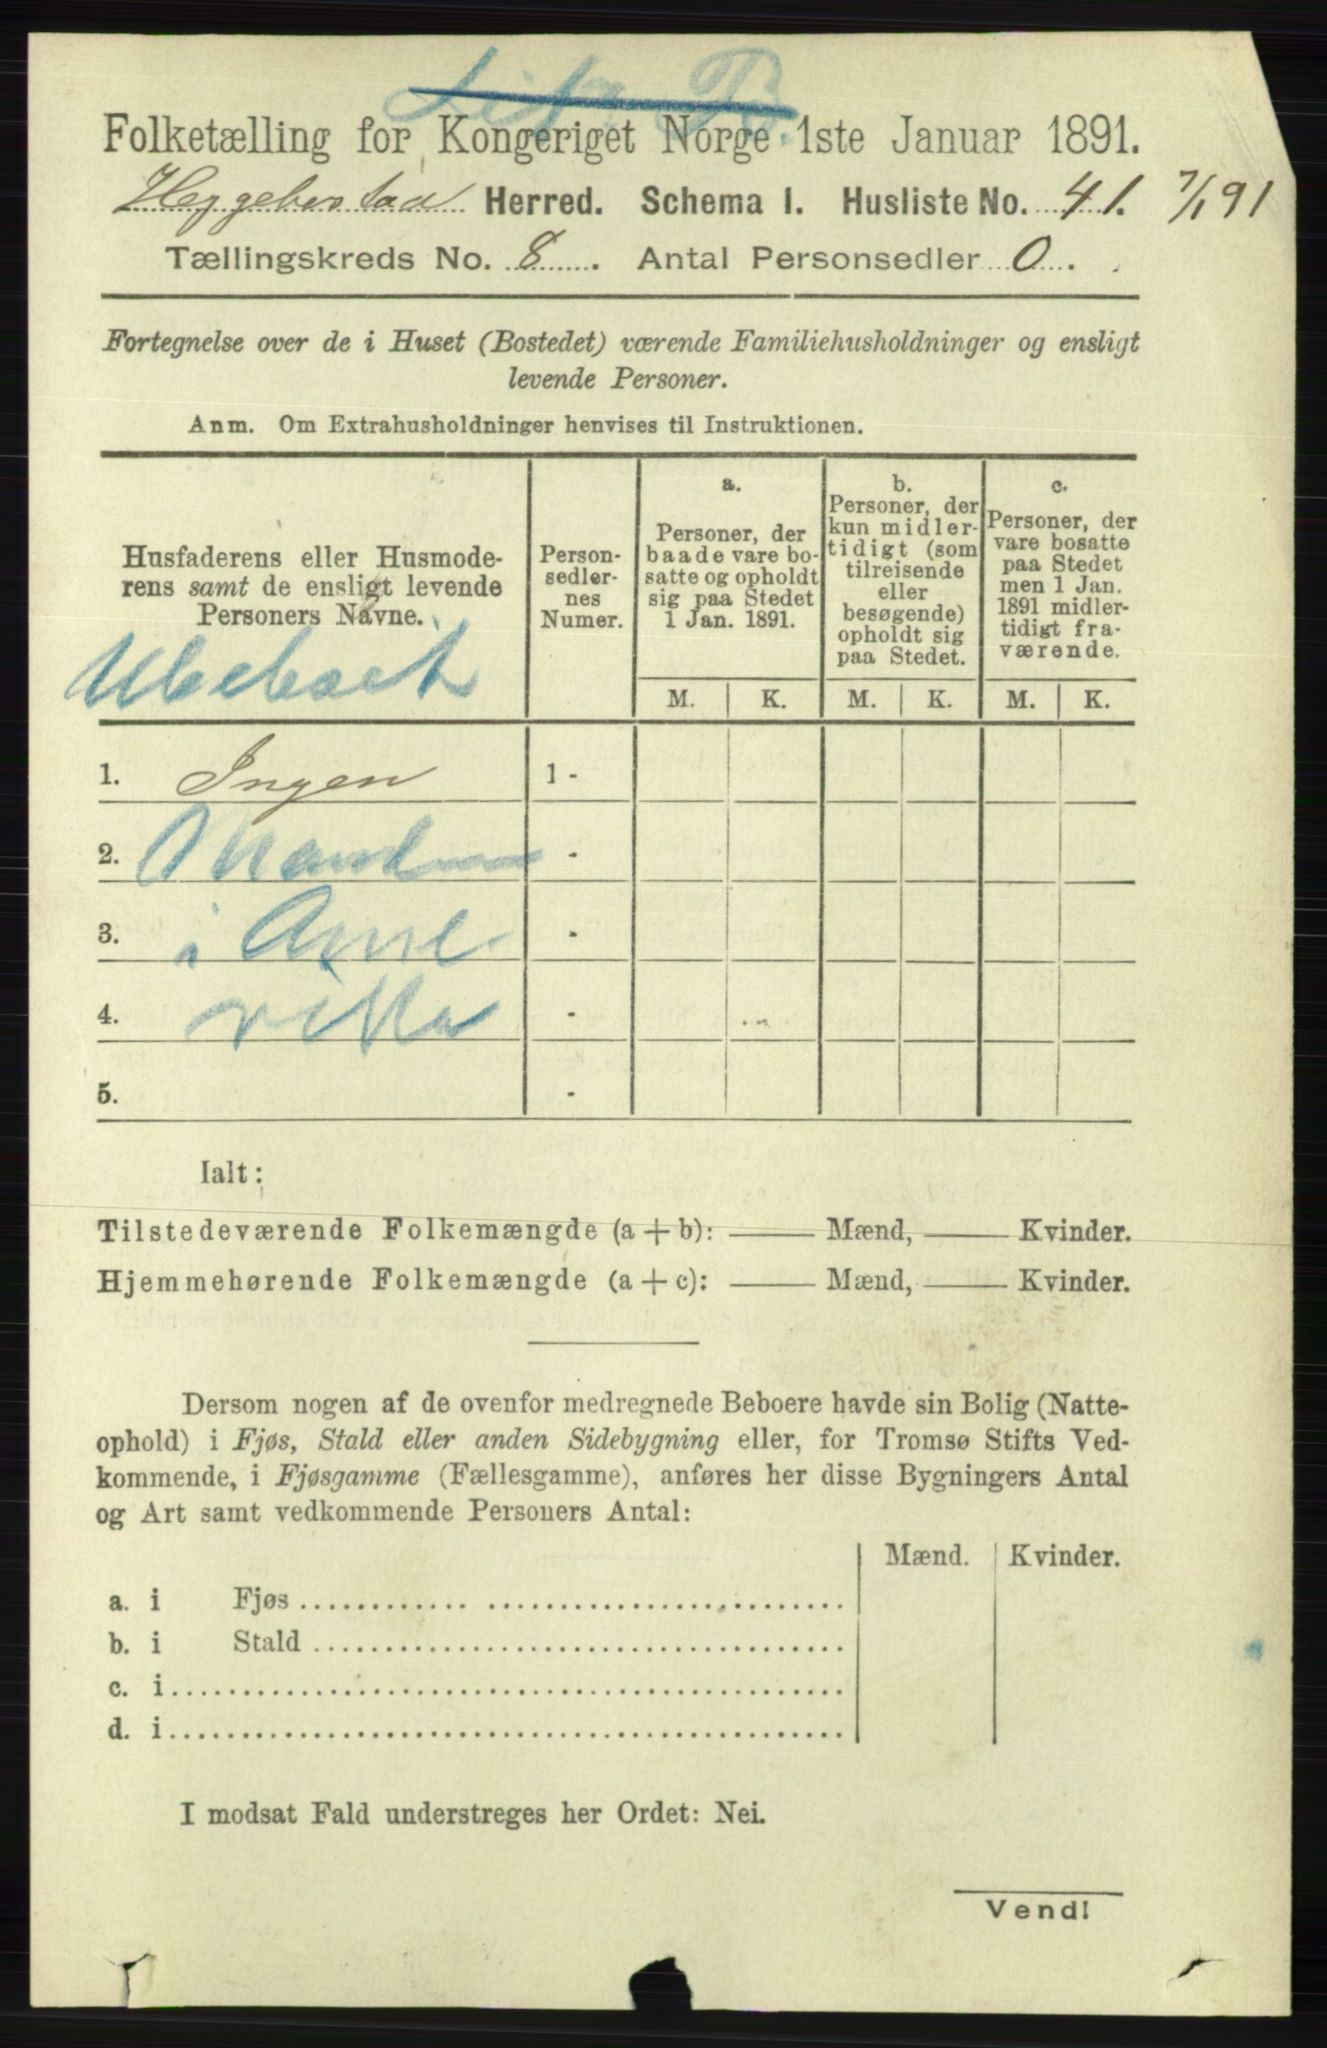 Folketælling for Kongeriget Norge 1ste Januar 1891.
Heggebostad Herred. Schema I. Husliste No. 41. 7/1 91
Tællingskreds No. 8. Antal Personsedler 0.
Fortegnelse over de i Huset (Bostedet) værende Familiehusholdninger og ensligt
levende Personer.
Anm. Om Extrahusholdninger henvises til Instruktionen.
Husfaderens eller Husmode-
rens samt de ensligt levende
Personers Navne.
Ubeboet
Person-
sedler-
nes
Numer.
a.
Personer, der
baade vare bo-
satte og opholdt
sig paa Stedet
1 Jan. 1891.
b.
Personer, der
kun midler-
tidigt (som
tilreisende
eller
besøgende)
opholdt sig
paa Stedet.
c.
Personer, der
vare bosatte
paa Stedet
men 1 Jan.
1891 midler-
tidigt fra-
værende.
M. K. M. K. M. K.
1. Ingen 1 -
2. Manden -
3. i Ame -
4. rika -
5. -
Ialt:
Tilstedeværende Folkemængde (a + b): —— Mænd, —— Kvinder.
Hjemmehørende Folkemængde (a + c): —— Mænd, —— Kvinder.
Dersom nogen af de ovenfor medregnede Beboere havde sin Bolig (Natte-
ophold) i Fjøs, Stald eller anden Sidebygning eller, for Tromsø Stifts Ved-
kommende, i Fjøsgamme (Fællesgamme), anføres her disse Bygningers Antal
og Art samt vedkommende Personers Antal:
Mænd. Kvinder.
a. i Fjøs
b. i Stald
c. i
d. i
I modsat Fald understreges her Ordet: Nei.
Vend!